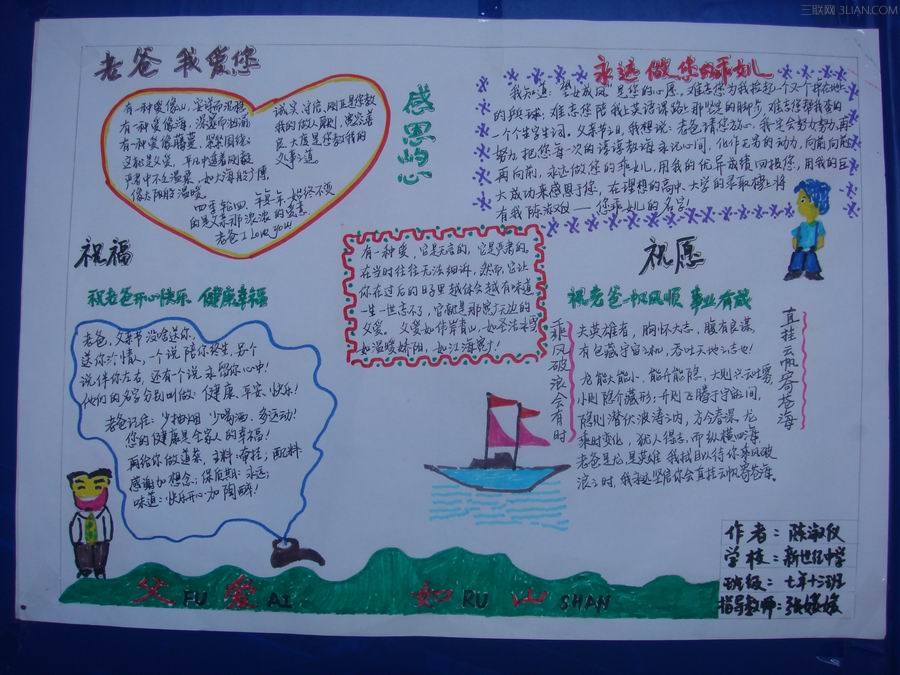 三联网 3LIAN.COM
老爸 我爱您
有一种爱像山,坚liang而沉稳
有一种爱像海,深邃而
有一种爱像藤蔓,紧紧围绕
这就是父爱,平凡中透着刚毅
严肃中不乏温柔,如大海般广博
像太阳般温暖
诚实守信,刚正是您教
我的做人原则,宽容善
良大度是您教我的
交事之道
四季轮回,年复一年,始终不变
的是父亲那浓浓的爱意
老爸 I Love you
感恩的心
永远做您的乖女儿
我知道:望女成凤,是您的心愿,难忘您为我捡起一个又一个
的球,难忘您陪我上英语课路上那坚定的脚步,难忘您帮我查的
一个个生字生词,父亲节之日,我想说:老爸请您放心,我定会努力努力再
努力,把您每一次的谆谆教诲永记心间,化作无穷的动力,向前向前
再向前,永远做您的乖女儿,用我的优异成绩回报您,用我的巨
大成功来感恩于您,在理想的高中、大学的录取榜上将
有我陈淑仪——您乖女儿的名字!
祝福
祝老爸开心快乐 健康幸福
老爸,父亲节没啥送你,
送你3个情人,一个说陪你终生,另个
说伴你左右,还有个说永留你心中!
他们的名字分别叫做:健康、平安、快乐!
老爸记住:少抽烟 少喝酒,多运动!
您的健康是全家人的幸福!
再给你做道菜,主料:牵挂;配料:
感谢加想念;保质期:永远;
味道:快乐开心加陶醉!
有一种爱,它是无言的,它是严肃的,
在当时往往无法细诉,然而,它让
你在过后的日子里越体会越有味道
一生一世忘不了,它就是那宽广无边的
父爱。父爱如伟岸青山,如圣洁冰雪
如温暖娇阳,如江海宽广!
祝愿
祝老爸一帆风顺 事业有成
乘风破浪会有时
夫英雄者,胸怀大志,腹有良谋,
有包藏宇宙之机,吞吐天地之志也!
龙能大能小,能升能隐,大则兴云吐雾,
小则隐介藏形;升则飞腾于宇宙间,
隐则潜伏波涛之内,方今春深,龙
乘时变化,犹人得志,而纵横四海
老爸是龙,是英雄,我拭目以待你乘风破
浪之时,我永远坚陪你会直挂云帆寄苍海。
直挂云帆寄苍海
父 FU 爱 AI 如 RU 山 SHAN
作者:陈淑仪
学校:新世纪中学
班级:七年十二班
指导教师:张媛媛